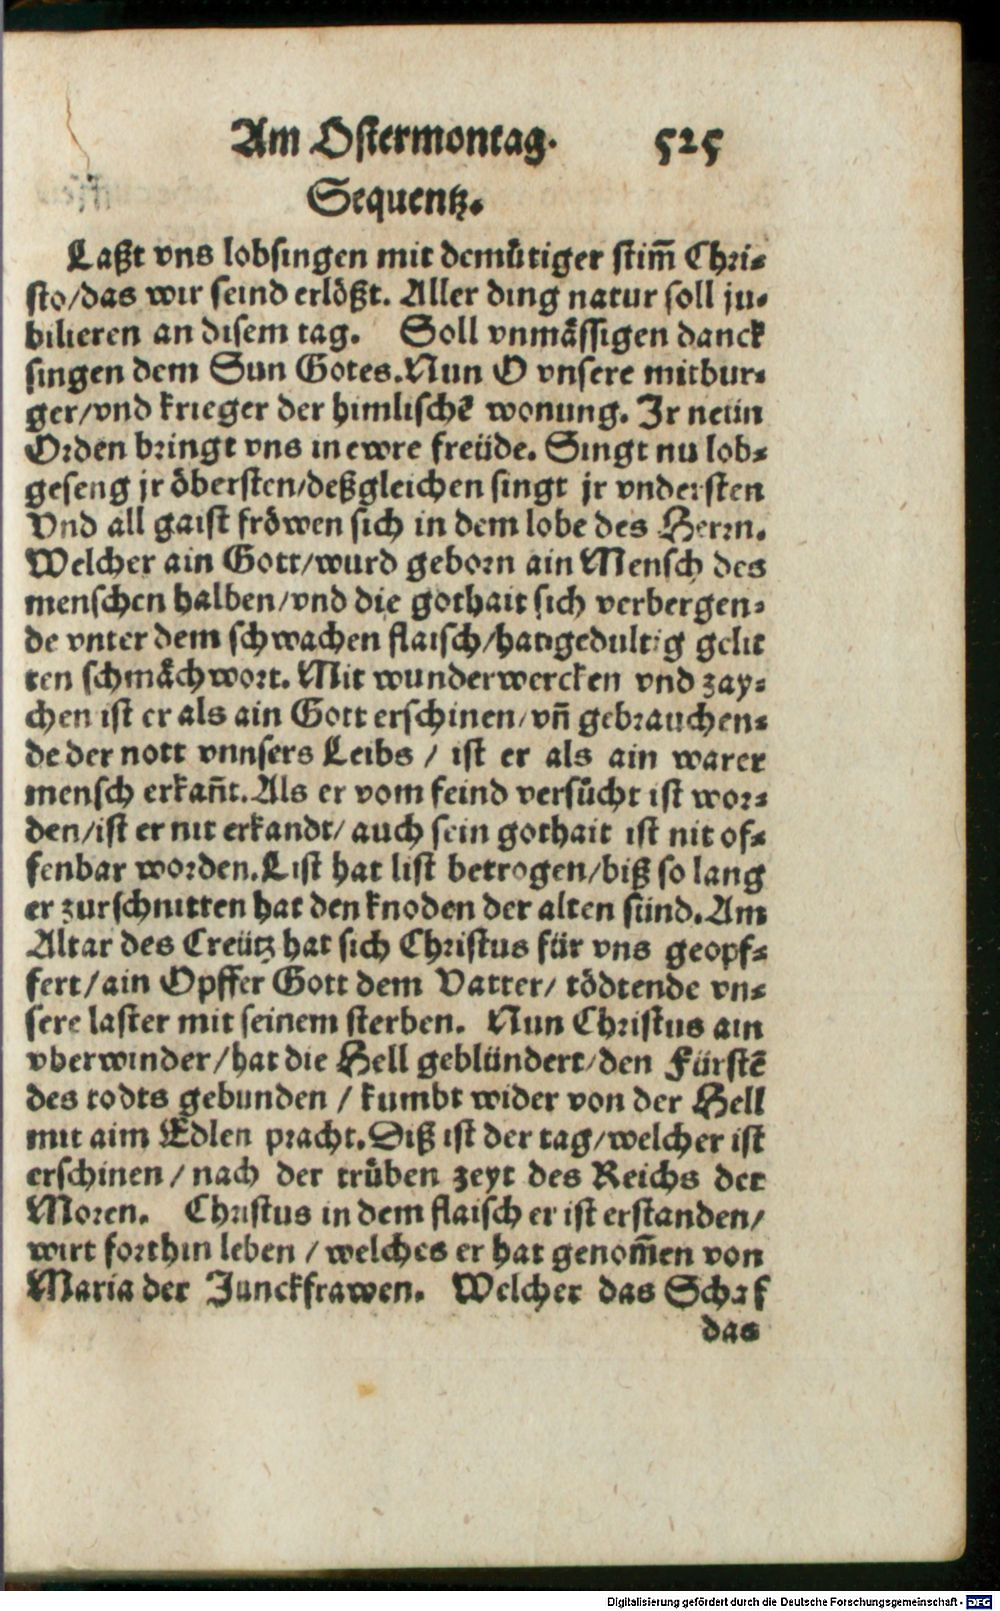 Am Ostermontag. 525
Sequentz.
Laßt vns lobsingen mit demuͤtiger stim̄ Chri⸗
sto/das wir seind erlößt. Aller ding natur soll ju⸗
bilieren an disem tag. Soll vnmaͤssigen danck
singen dem Sun Gotes. Nun O vnsere mitbur⸗
ger/vnd krieger der himlischē wonung. Ir neün
Orden bringt vns in ewre freüde. Singt nu lob⸗
geseng jr oͤbersten/deßgleichen singt jr vndersten
Vnd all gaist froͤwen sich in dem lobe des Herrn.
Welcher ain Gott/wurd geborn ain Mensch des
menschen halben/vnd die gothait sich verbergen⸗
de vnter dem schwachen flaisch/hat gedultig gelit
ten schmaͤchwort. Mit wunderwercken vnd zay⸗
chen ist er als ain Gott erschinen/vn̄ gebrauchen⸗
de der nott vnnsers Leibs / ist er als ain warer
mensch erkan̄t. Als er vom feind versuͤcht ist wor⸗
den/ist er nit erkandt/ auch sein gothait ist nit of⸗
fenbar worden. List hat list betrogen/biß so lang
er zurschnitten hat den knoden der alten sünd. Am
Altar des Creütz hat sich Christus für vns geopf⸗
fert/ain Opffer Gott dem Vatter/ toͤdtende vn⸗
sere laster mit seinem sterben. Nun Christus ain
vberwinder/hat die Hell geblündert/den Fürstē
des todts gebunden / kumbt wider von der Hell
mit aim Edlen pracht. Diß ist der tag/welcher ist
erschinen / nach der truͤben zeyt des Reichs der
Moren. Christus in dem flaisch er ist erstanden/
wirt forthin leben / welches er hat genom̄en von
Maria der Junckfrawen. Welcher das Schaf
das
Digitalisierung gefördert durch die Deutsche Forschungsgemeinschaft - DFG